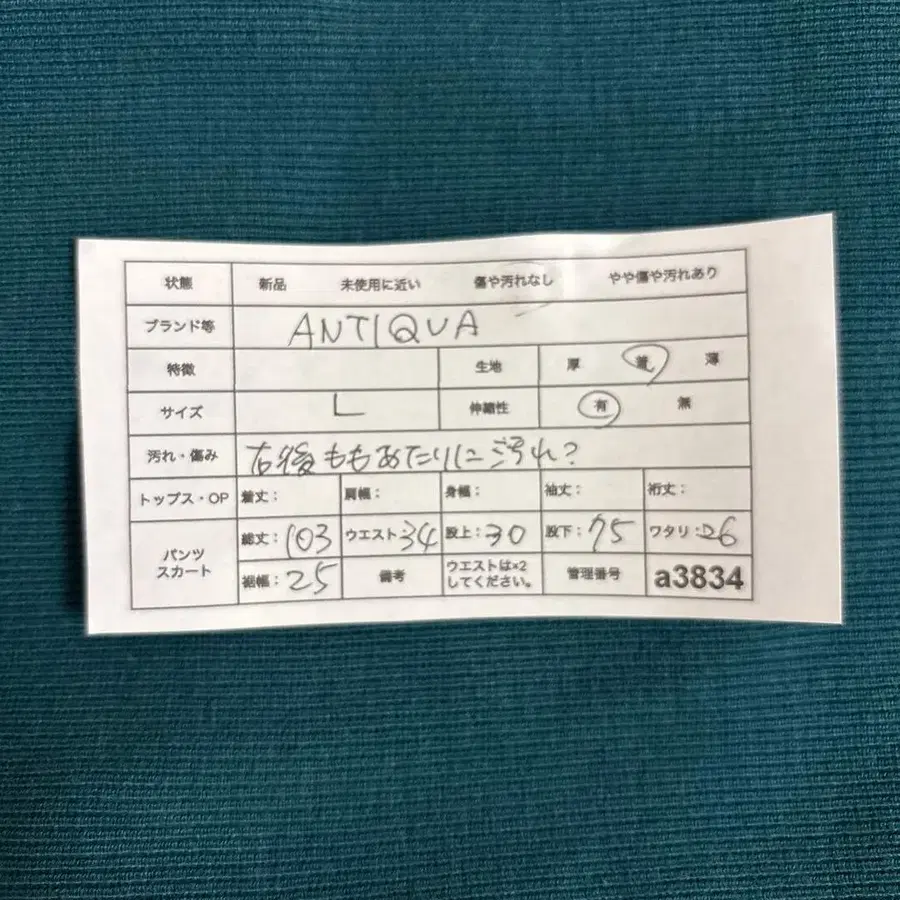 状態 新品 未使用に近い 傷や汚れなし やや傷や汚れあり
ブランド等 ANTIQUA
特徴 生地 厚 普 薄
サイズ L 伸縮性 有 無
汚れ・傷み 右後ももあたりに汚れ?
トップス・OP 着丈: 肩幅: 身幅: 袖丈: 裄丈:
パンツ スカート 総丈:103 ウエスト34 股上:30 股下:75 ワタリ:26
裾幅:25 備考 ウエストは×2してください。 管理番号 a3834